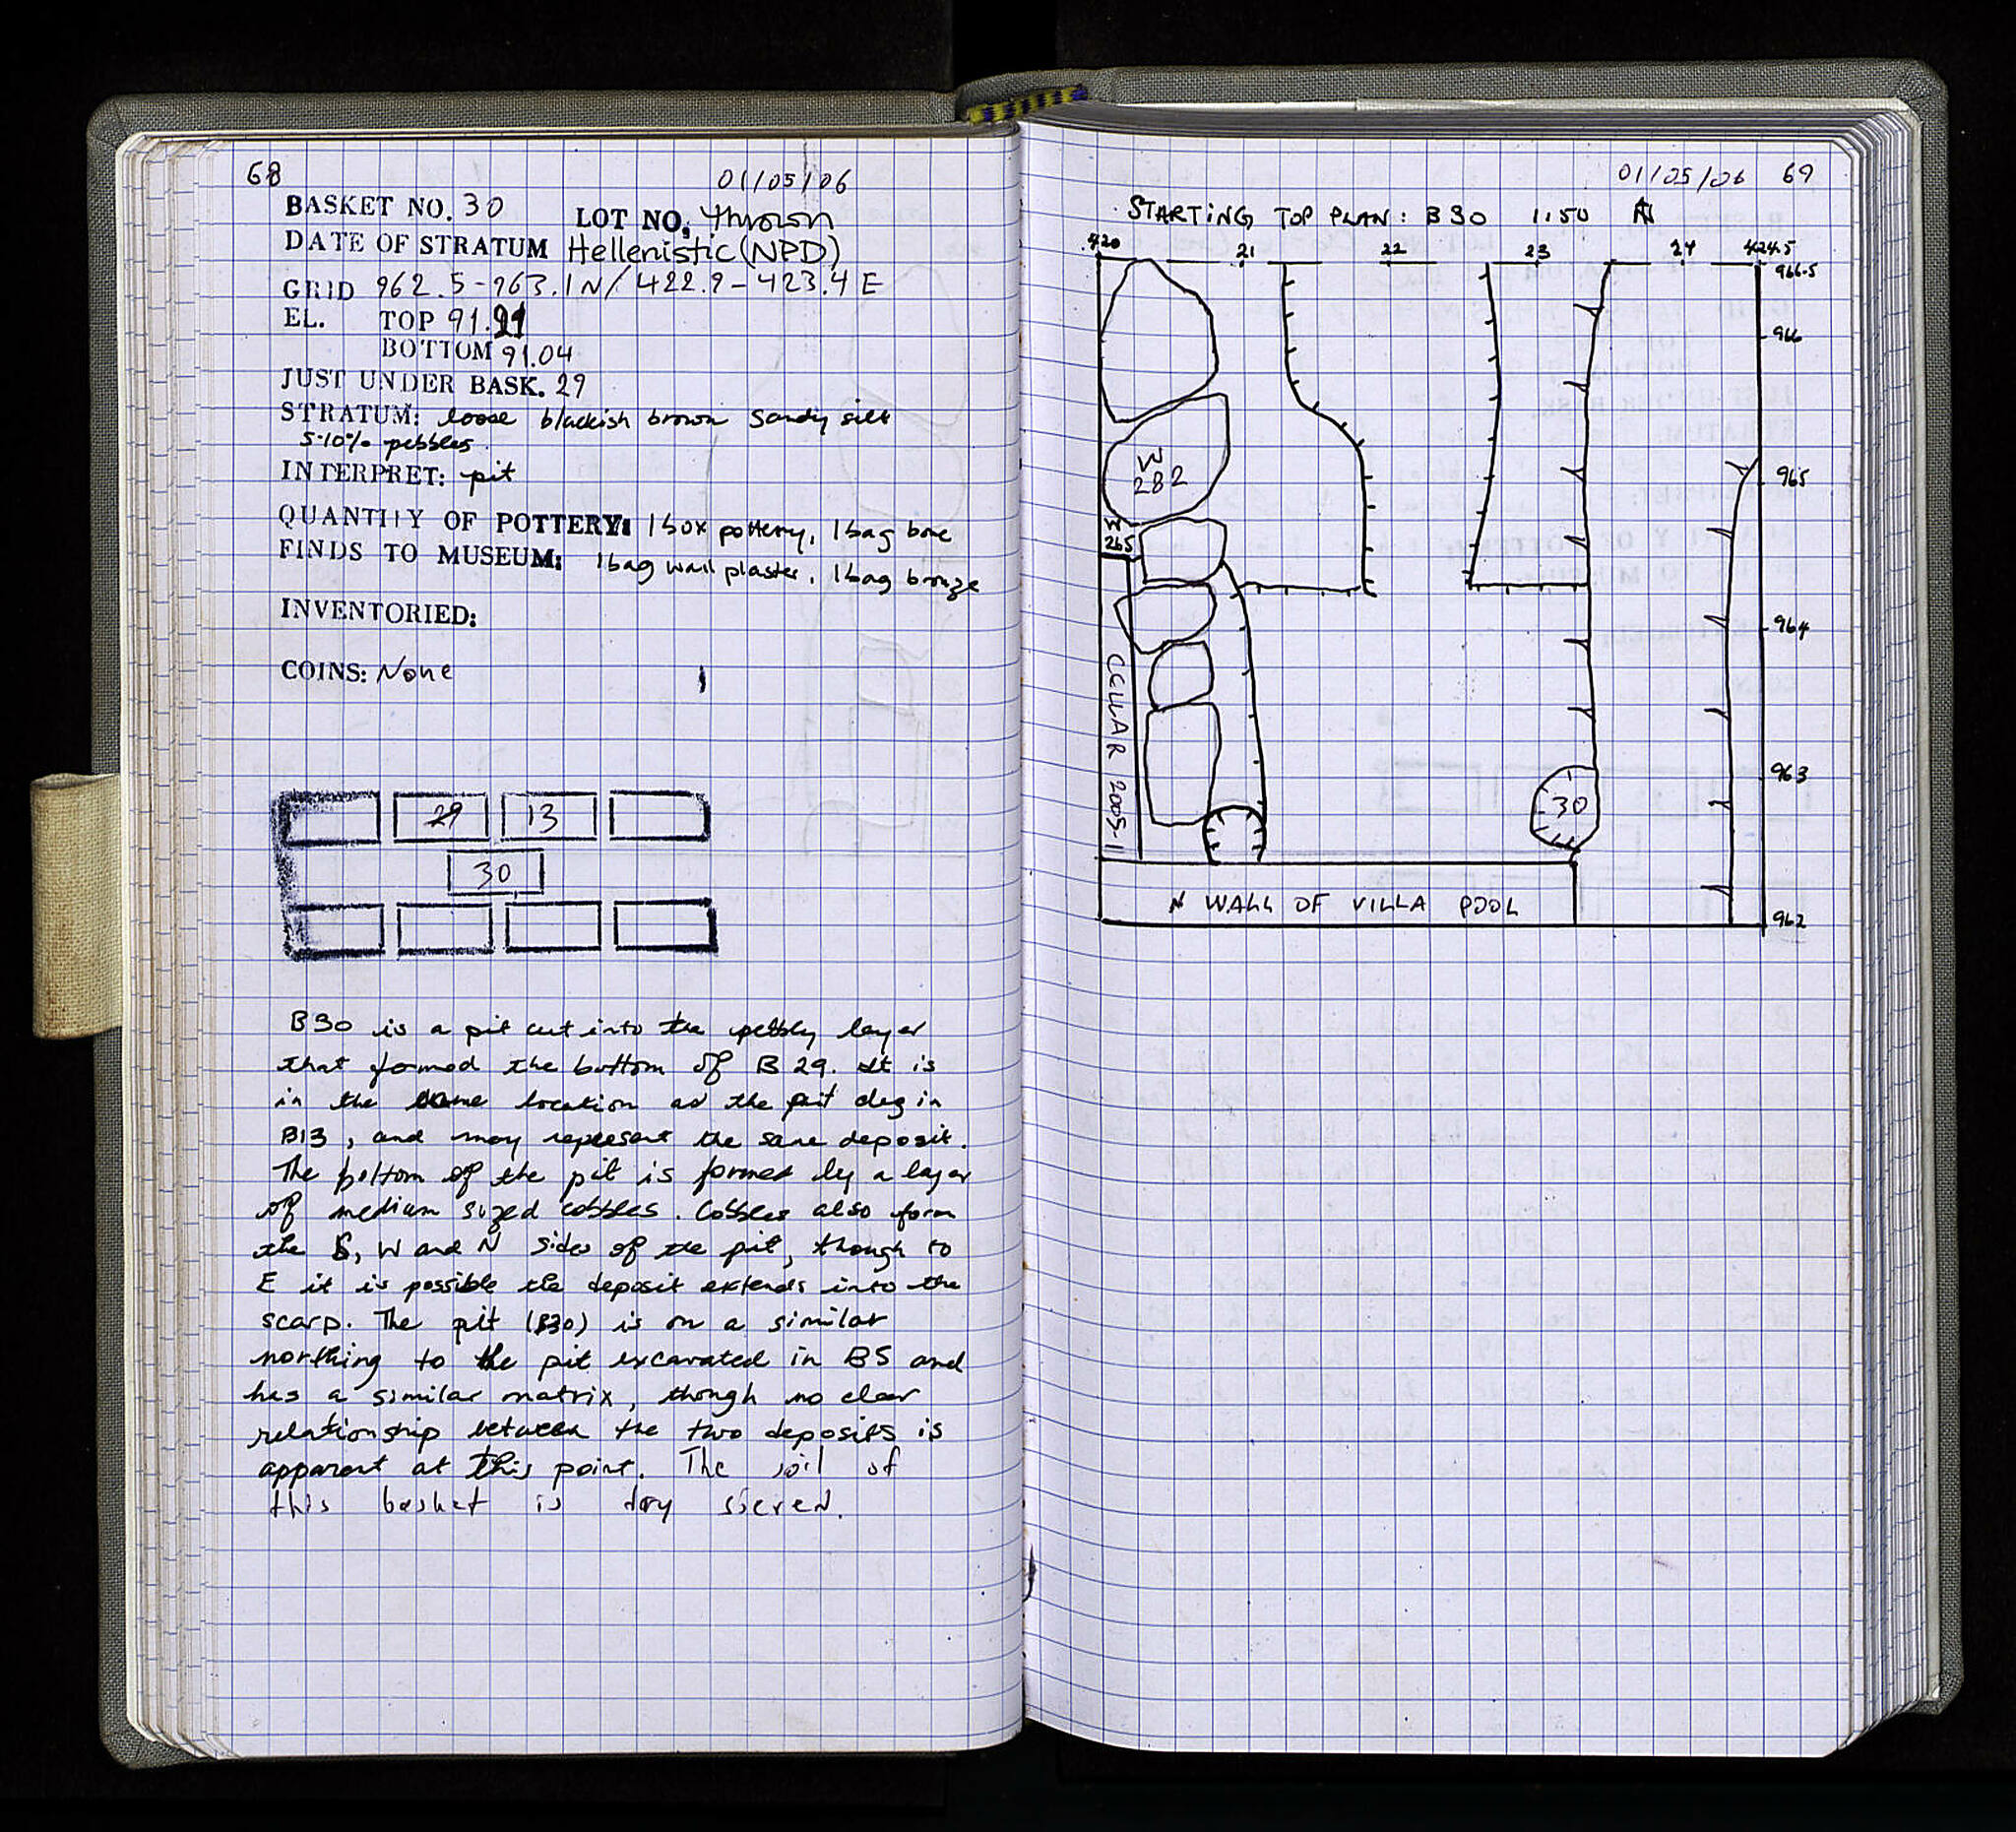 68
01/05/06
BASKET NO. 30 LOT NO. Thrown
DATE OF STRATUM Hellenistic (NPD)
GRID 962.5-963.1N/422.9-423.4E
EL. TOP 91.21
BOTTOM 91.04
JUST UNDER BASK. 29
STRATUM: loose blackish brown sandy silt
5-10% pebbles.
INTERPRET: pit
QUANTITY OF POTTERY: 1 box pottery, 1 bag bone
FINDS TO MUSEUM: 1 bag wall plaster, 1 bag bronze
INVENTORIED:
COINS: None
29 13
30
B30 is a pit cut into the pebbly layer
that formed the bottom of B29. It is
in the same location as the pit dug in
B13, and may represent the same deposit.
The bottom of the pit is formed by a layer
of medium sized cobbles. Cobbles also form
the S, W and N sides of the pit, though to
E it is possible the deposit extends into the
scarp. The pit (B30) is on a similar
northing to the pit excavated in B5 and
has a similar matrix, though no clear
relationship between the two deposits is
apparent at this point. The soil of
this basket is dry sieved.
01/05/06 69
STARTING TOP PLAN: B30 1:50 N
420 21 22 23 24 424.5
966.5
966
W
282
965
W
265
964
CELLAR 2005-1
963
30
N WALL OF VILLA POOL
962